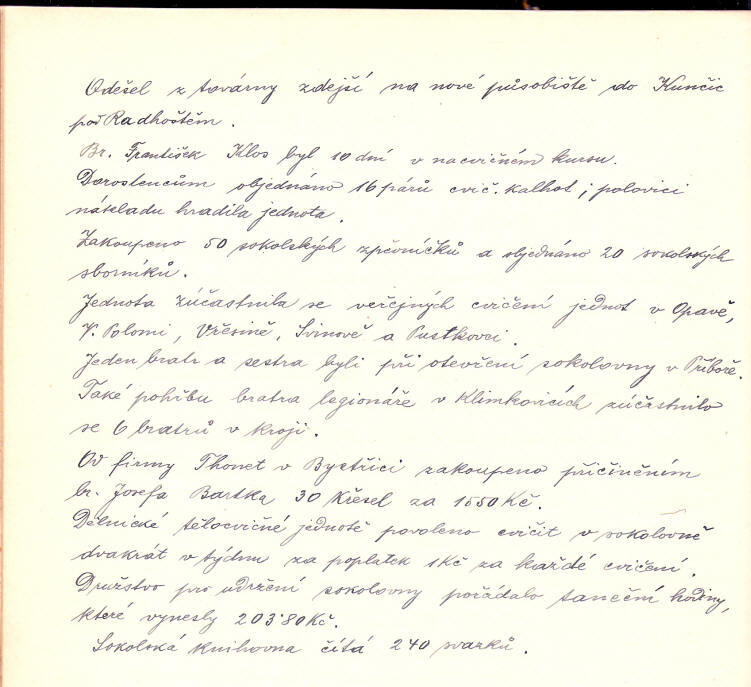 Odešel z továrny zdejší na nové působiště do Kunčic
pod Radhoštěm.
Br. František Klos byl 10 dní v nacvičném kursu.
Dorostencům objednáno 16 párů cvič. kalhot; polovici
nákladu hradila jednota.
Zakoupeno 50 sokolských zpěvníčků a objednáno 20 sokolských
sborníků.
Jednota zúčastnila se veřejných cvičení jednot v Opavě,
V. Polomi, Vřesině, Svinově a Pustkovci.
Jeden bratr a sestra byli při otevření sokolovny v Příboře.
Také pohřbu bratra legionáře v Klimkovicích zúčastnilo
se 6 bratrů v kroji.
Od firmy Thonet v Bystřici zakoupeno přičiněním
br. Josefa Bartka 30 křesel za 1550 Kč.
Dělnické tělocvičné jednotě povoleno cvičit v sokolovně
dvakrát v týdnu za poplatek 1 Kč za každé cvičení.
Družstvo pro udržení sokolovny pořádalo taneční hodiny,
které vynesly 203·80 Kč.
Sokolská knihovna čítá 240 svazků.